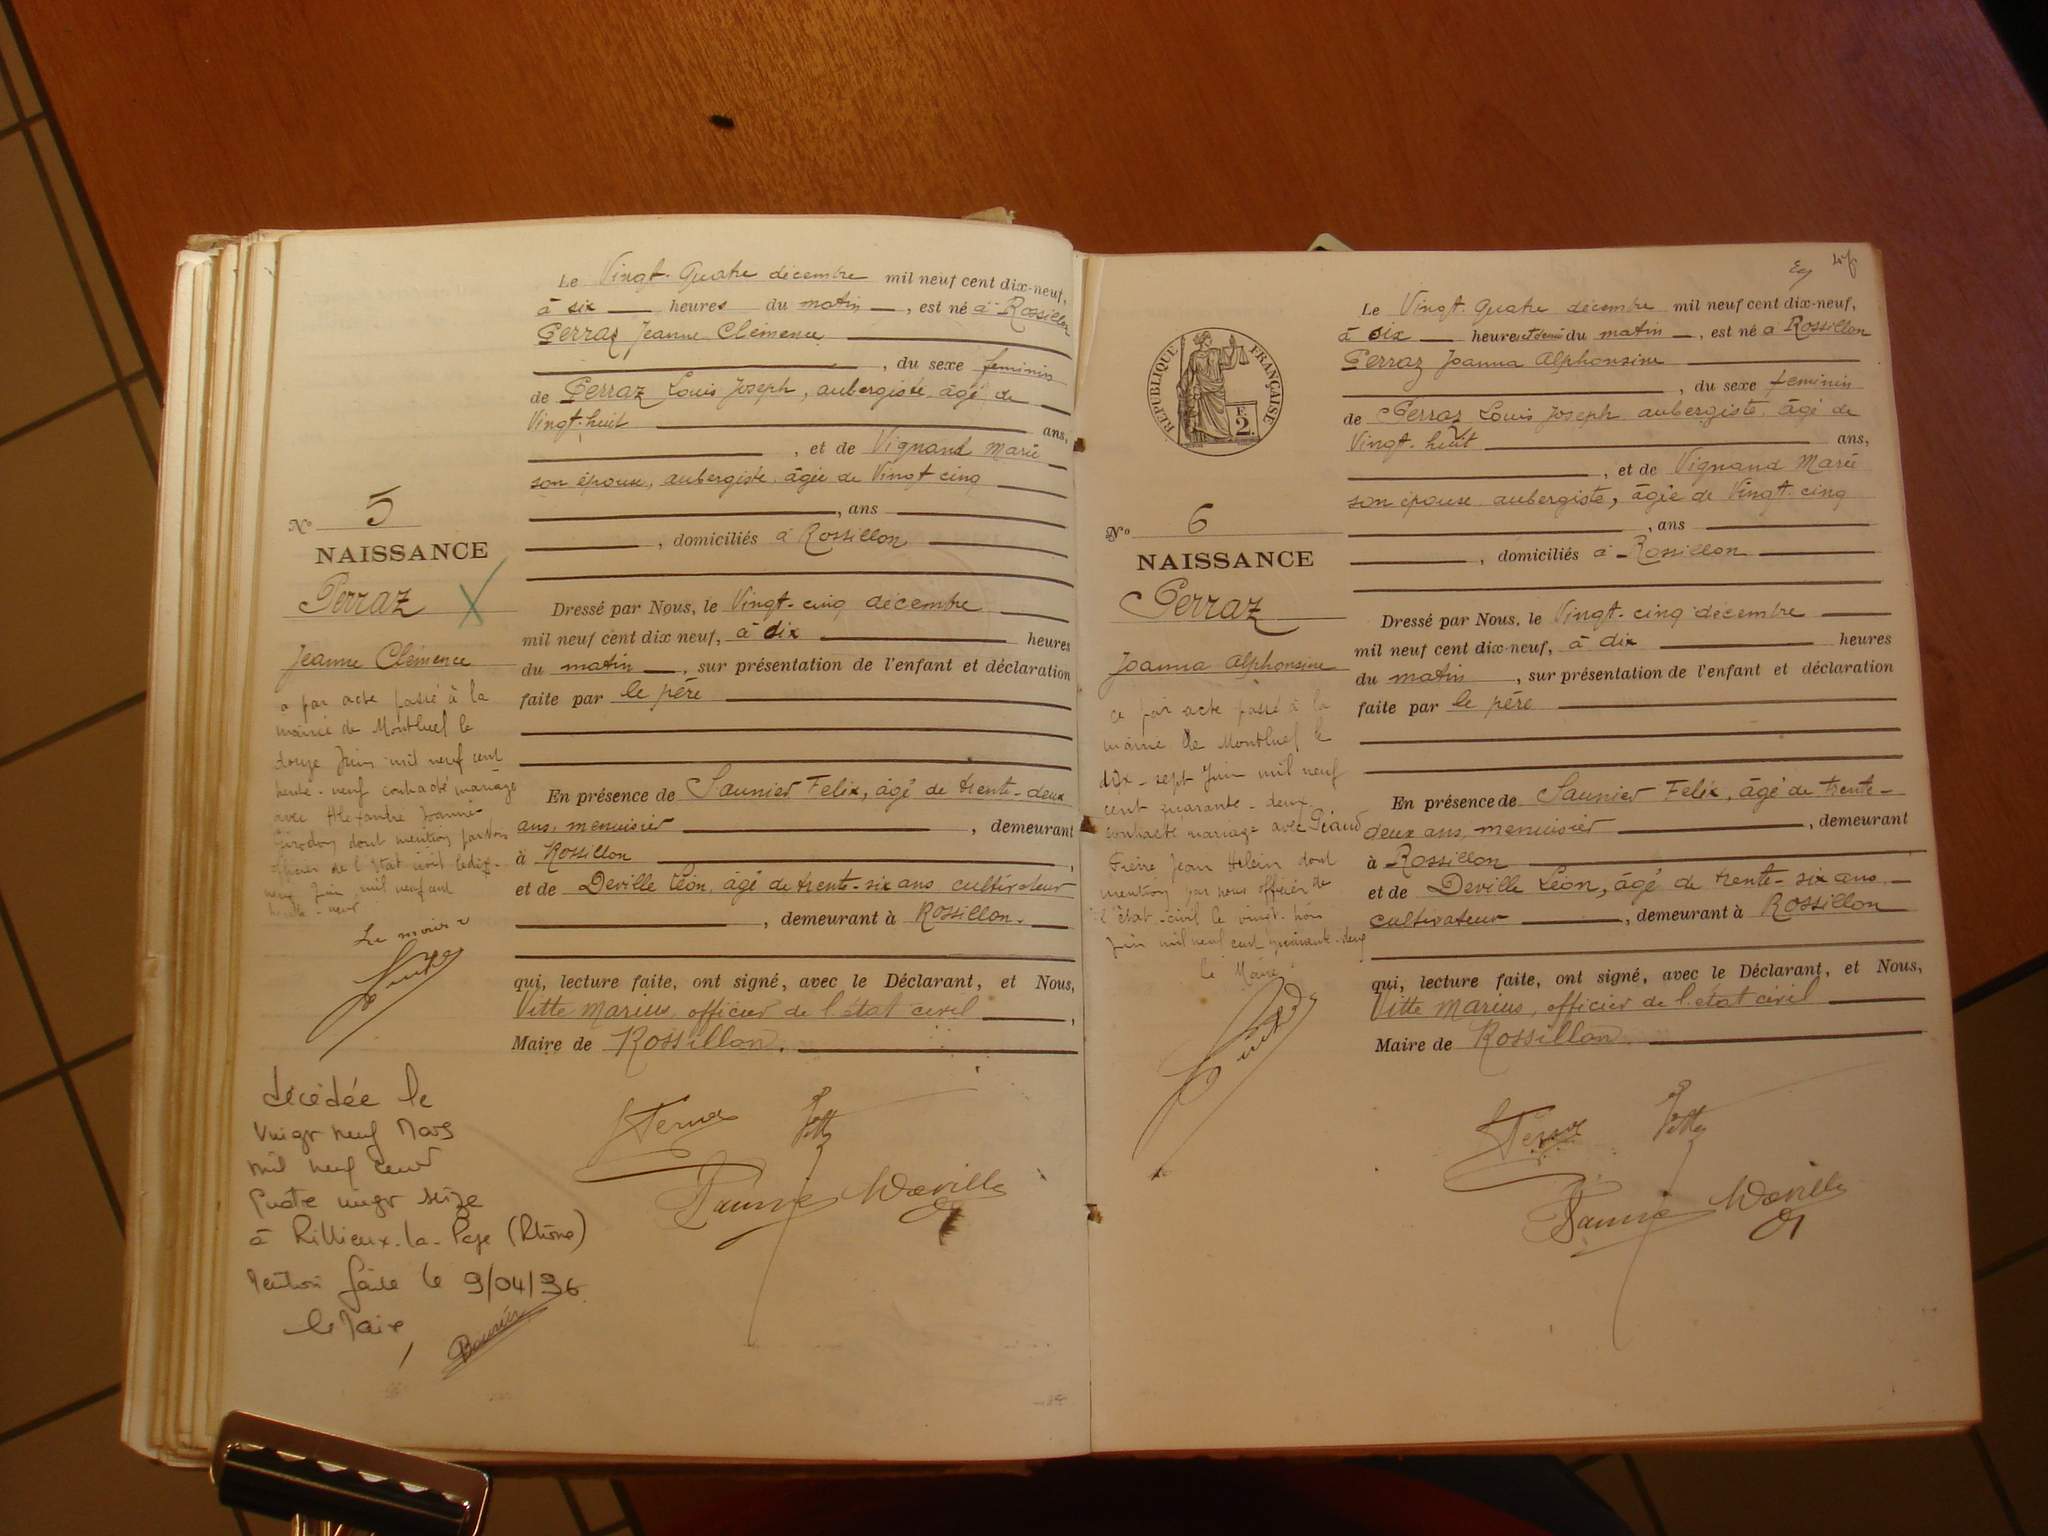 Le Vingt-Quatre décembre mil neuf cent dix-neuf,
à six heures du matin, est né à Rossillon
Perraz Jeanne Clémence
, du sexe féminin
de Perraz Louis Joseph, aubergiste, âgé de
Vingt-huit ans,
, et de Vignand Marie
son épouse, aubergiste, âgée de Vingt cinq
, ans
, domiciliés à Rossillon
Nº 5
NAISSANCE
Perraz
Jeanne Clémence
Dressé par Nous, le Vingt-cinq décembre
mil neuf cent dix neuf, à dix heures
du matin, sur présentation de l'enfant et déclaration
faite par le père
En présence de Saunier Felix, âgé de trente-deux
ans, menuisier, demeurant
à Rossillon,
et de Deville Léon, âgé de trente-six ans, cultivateur
, demeurant à Rossillon.
qui, lecture faite, ont signé, avec le Déclarant, et Nous,
Vitte Marius, officier de l'état civil,
Maire de Rossillon.
a par acte passé à la
mairie de Montluel le
douze Juin mil neuf cent
trente-neuf contracté mariage
avec Alexandre Joannès
Girodon dont mention par Nous
officier de l'Etat civil le dix-
neuf Juin mil neuf cent
trente-neuf
Le maire
décédée le
vingt neuf Mars
mil neuf cent
quatre vingt seize
à Rillieux-la-Pape (Rhône)
Mention faite le 9/04/96
le Maire,
47
Le Vingt-Quatre décembre mil neuf cent dix-neuf,
à six heures et demi du matin, est né à Rossillon
Perraz Joanna Alphonsine
, du sexe féminin
de Perraz Louis Joseph aubergiste, âgé de
Vingt-huit ans,
, et de Vignand Marie
son épouse aubergiste, âgée de Vingt-cinq
, ans
, domiciliés à Rossillon
RÉPUBLIQUE FRANÇAISE
2
Nº 6
NAISSANCE
Perraz
Joanna Alphonsine
Dressé par Nous, le Vingt-cinq décembre
mil neuf cent dix-neuf, à dix heures
du matin, sur présentation de l'enfant et déclaration
faite par le père
En présence de Saunier Felix, âgé de trente-
deux ans, menuisier, demeurant
à Rossillon
et de Deville Léon, âgé de trente-six ans
cultivateur, demeurant à Rossillon
qui, lecture faite, ont signé, avec le Déclarant, et Nous,
Vitte Marius, officier de l'état civil
Maire de Rossillon.
par acte passé à la
mairie de Montluel le
dix-sept Juin mil neuf
cent quarante-deux
contracté mariage avec
Jean dont
mention par nous officier de
l'état-civil le vingt-trois
juin mil neuf cent quarante-deux
le Maire